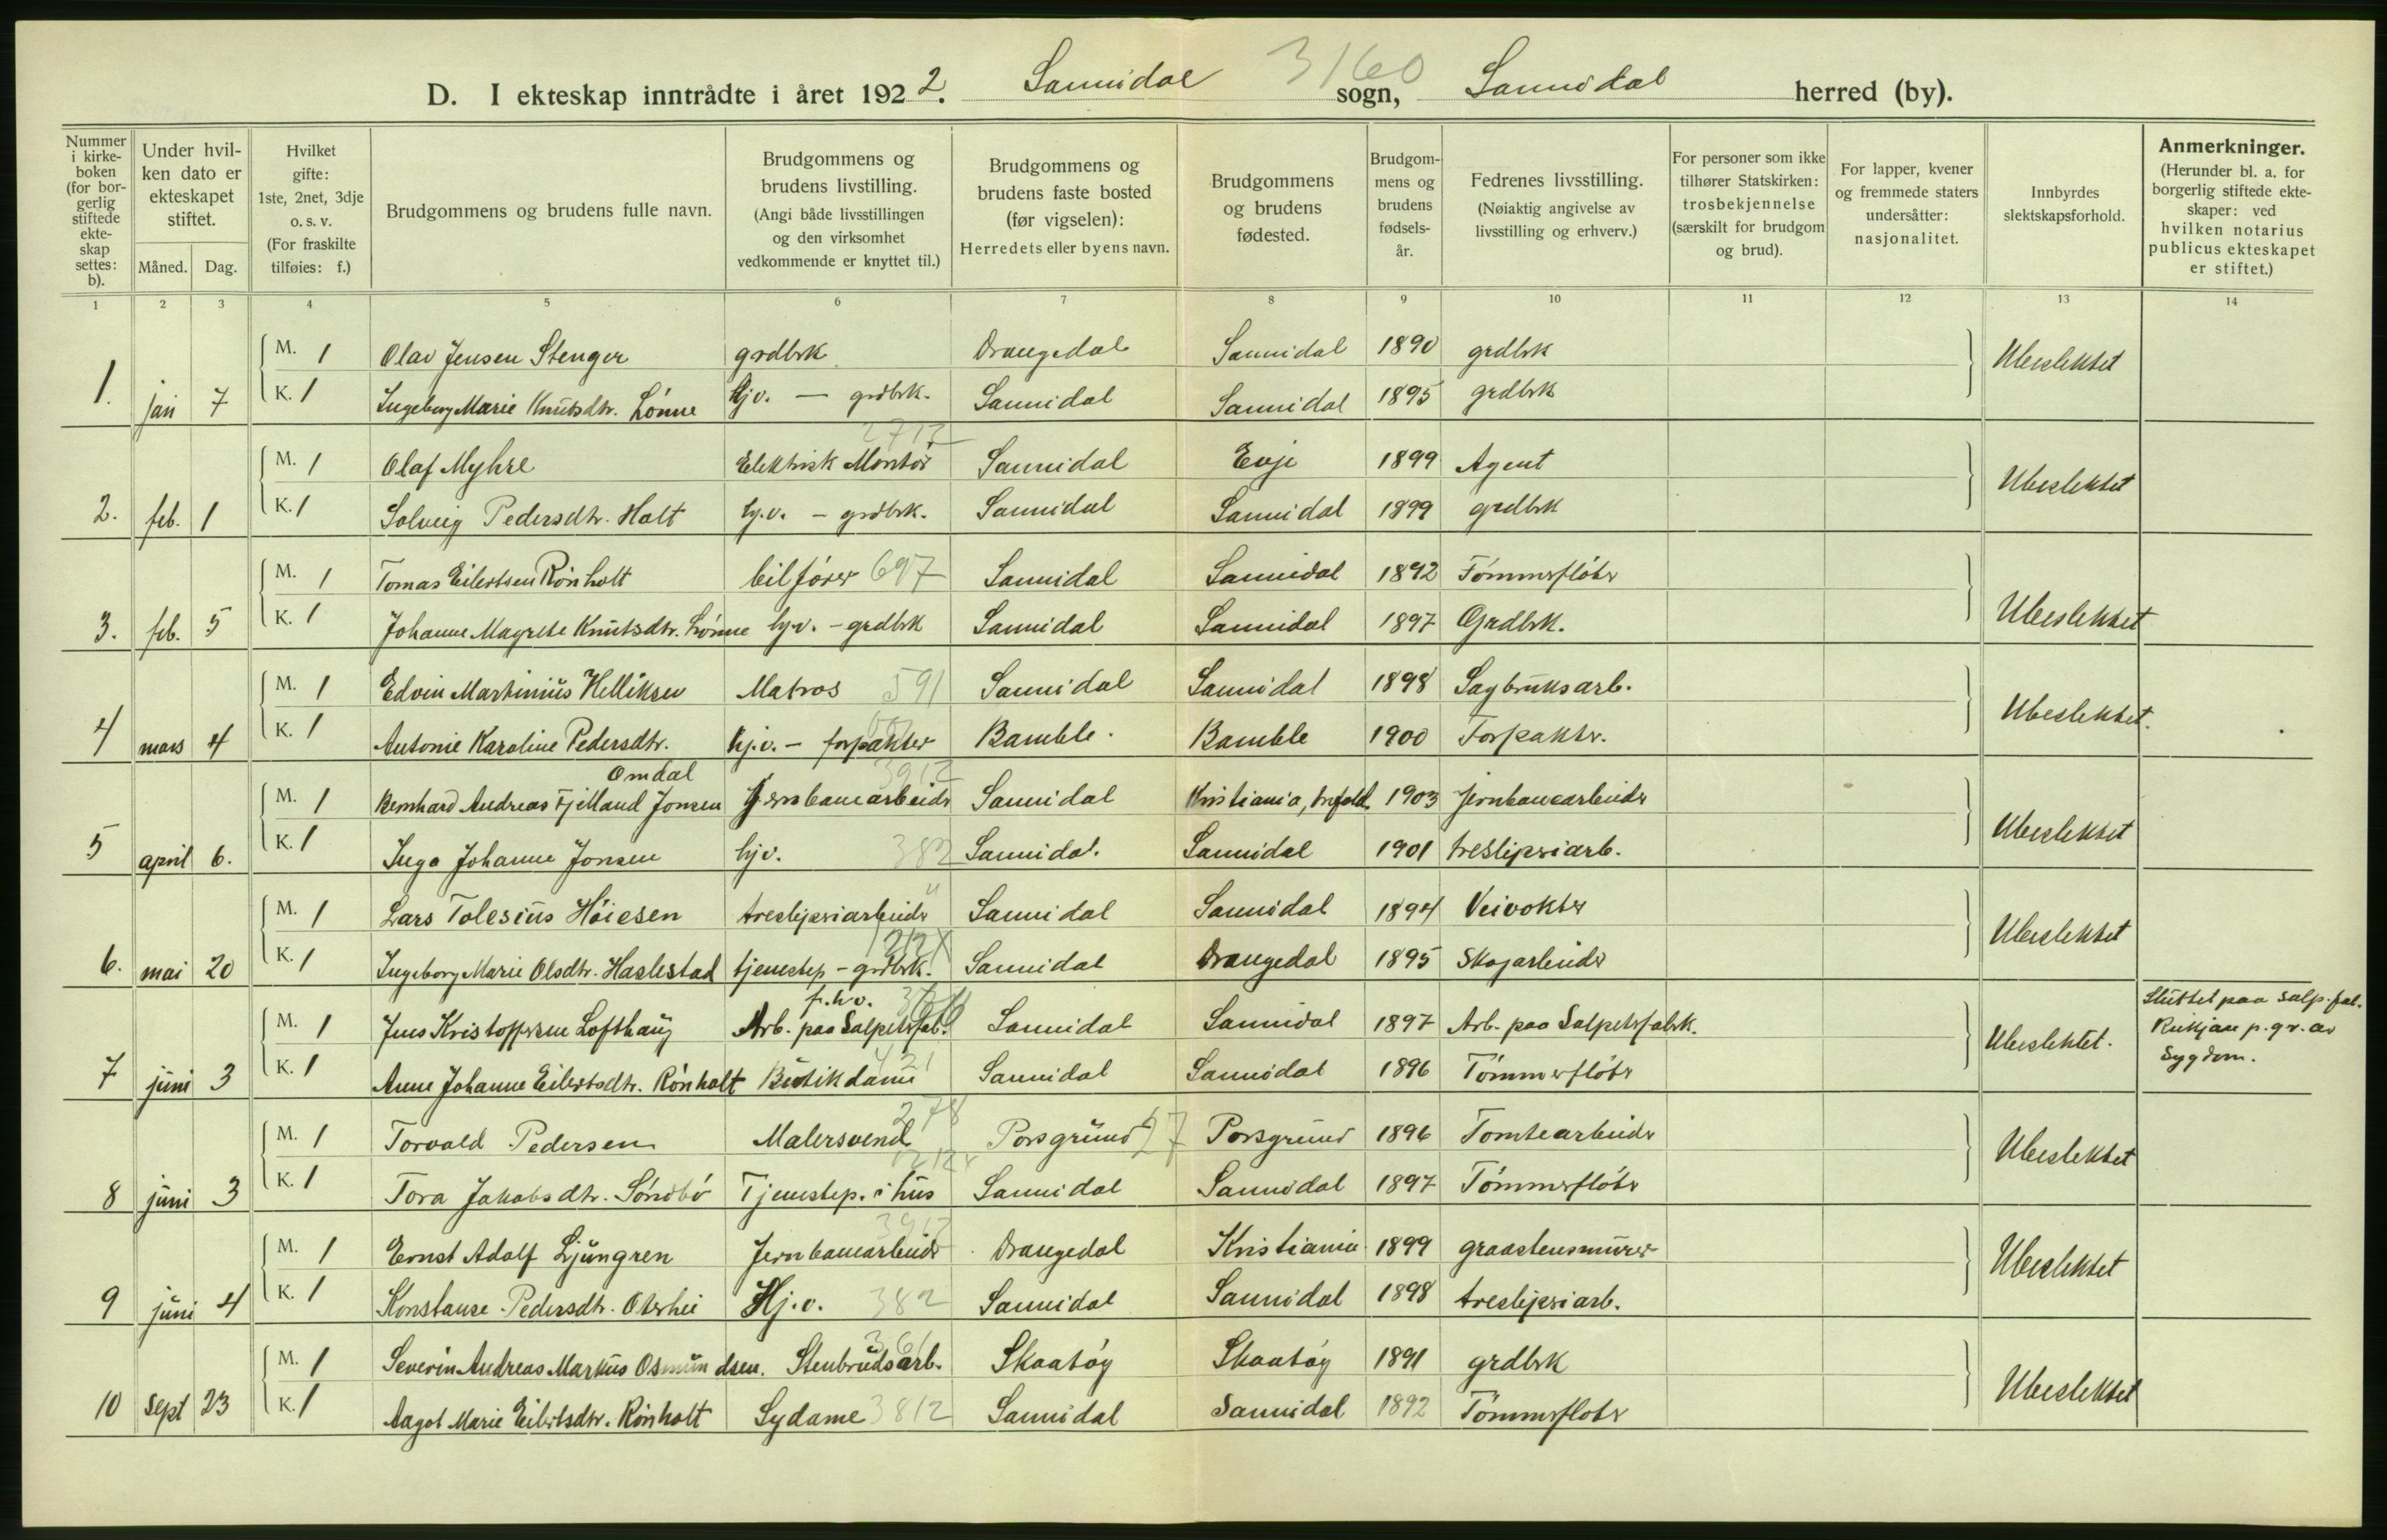 3160
D. I ekteskap inntrådte i året 1922. Sannidal sogn, Sannidal herred (by).
Nummer i kirkeboken (for borgerlig stiftede ekteskap settes: b).
Under hvilken dato er ekteskapet stiftet.
Måned. Dag.
Hvilket gifte: 1ste, 2net, 3dje o. s. v. (For fraskilte tilføies: f.)
Brudgommens og brudens fulle navn.
Brudgommens og brudens livstilling. (Angi både livsstillingen og den virksomhet vedkommende er knyttet til.)
Brudgommens og brudens faste bosted (før vigselen): Herredets eller byens navn.
Brudgommens og brudens fødested.
Brudgommens og brudens fødselsår.
Fedrenes livsstilling. (Nøiaktig angivelse av livsstilling og erhverv.)
For personer som ikke tilhører Statskirken: trosbekjennelse (særskilt for brudgom og brud).
For lapper, kvener og fremmede staters undersåtter: nasjonalitet.
Innbyrdes slektskapsforhold.
Anmerkninger. (Herunder bl. a. for borgerlig stiftede ekteskaper: ved hvilken notarius publicus ekteskapet er stiftet.)
1 2 3 4 5 6 7 8 9 10 11 12 13 14
M. 1 Olav Jensen Stenger grdbrk Drangedal Sannidal 1890 grdbrk Ubeslektet
1. jan 7 K. 1 Ingeborg Marie Knutsdtr. Lønne hj.v. — grdbrk. Sannidal Sannidal 1895 grdbrk
2712
M. 1 Olaf Myhre Elektrisk Montør Sannidal Evje 1899 Agent Ubeslektet
2. feb. 1 K. 1 Solveig Pedersdtr. Holt hj.v. - grdbrk. Sannidal Sannidal 1899 grdbrk
M. 1 Tomas Eilertsen Rönholt bilfører 697 Sannidal Sannidal 1892 Tømmerfløter Ubeslektet
3. feb. 5 K. 1 Johanne Magrete Knutsdtr. Lønne hj.v. - grdbrk Sannidal Sannidal 1897 Grdbrk.
M. 1 Edvin Martinius Helliksen Matros 591 Sannidal Sannidal 1898 Sagbruksarb. Ubeslektet.
4 mars 4 K. 1 Antonie Karoline Pedersdtr. hj.v. - forpakter Bamble. Bamble 1900 Forpakter.
Omdal 3912
M. 1 Bernhard Andreas Fjelland Jonsen Jernbanearbeider Sannidal Kristiania, 1903 jernbanearbeider Ubeslektet
5 april 6. K. 1 Inga Johanne Jonsen hjv. 382 Sannidal. Sannidal 1901 tresliperiarb.
M. 1 Lars Tolesius Høiesen tresliperiarbeider Sannidal Sannidal 1894 Veivokter Ubeslektet
6. mai 20 K. 1 Ingeborg Marie Olsdtr. Haslestad tjenestep - grdbrk. Sannidal Drangedal 1895 Skogarbeider
f.h.v.
M. 1 Jens Kristoffersen Lofthaug Arb. paa Salpeterfab. Sannidal Sannidal 1897 Arb. paa Salpeterfabrk. Ubeslektet. Sluttet paa salp.fab. Rukjan p. gr. av Sygdom.
7 juni 3 K. 1 Anne Johanne Eilertsdtr. Rönholt Butikdame 421 Sannidal Sannidal 1896 Tømmerfløter
278
M. 1 Torvald Pedersen Malersvend Porsgrund 27 Porsgrund 1896 Tomtearbeider Ubeslektet
8 juni 3 K. 1 Tora Jakobsdtr. Søndbø Tjenestep. i hus Sannidal Sannidal 1897 Tømmerfløter
3912
M. 1 Ernst Adolf Ljungren Jernbanearbeider Drangedal Kristiania 1899 graastensmurer Ubeslektet
9 juni 4 K. 1 Konstanse Pedersdtr. Oterhei Hj.v. 382 Sannidal Sannidal 1898 tresliperiarb.
361
M. 1 Severin Andreas Markus Osmundsen. Stenbrudsarb. Skaatøy Skaatøy 1891 grdbrk Ubeslektet
10 sept 23 K. 1 Aagot Marie Eilertsdtr. Rönholt Sydame 3812 Sannidal Sannidal 1892 Tømmerfløter